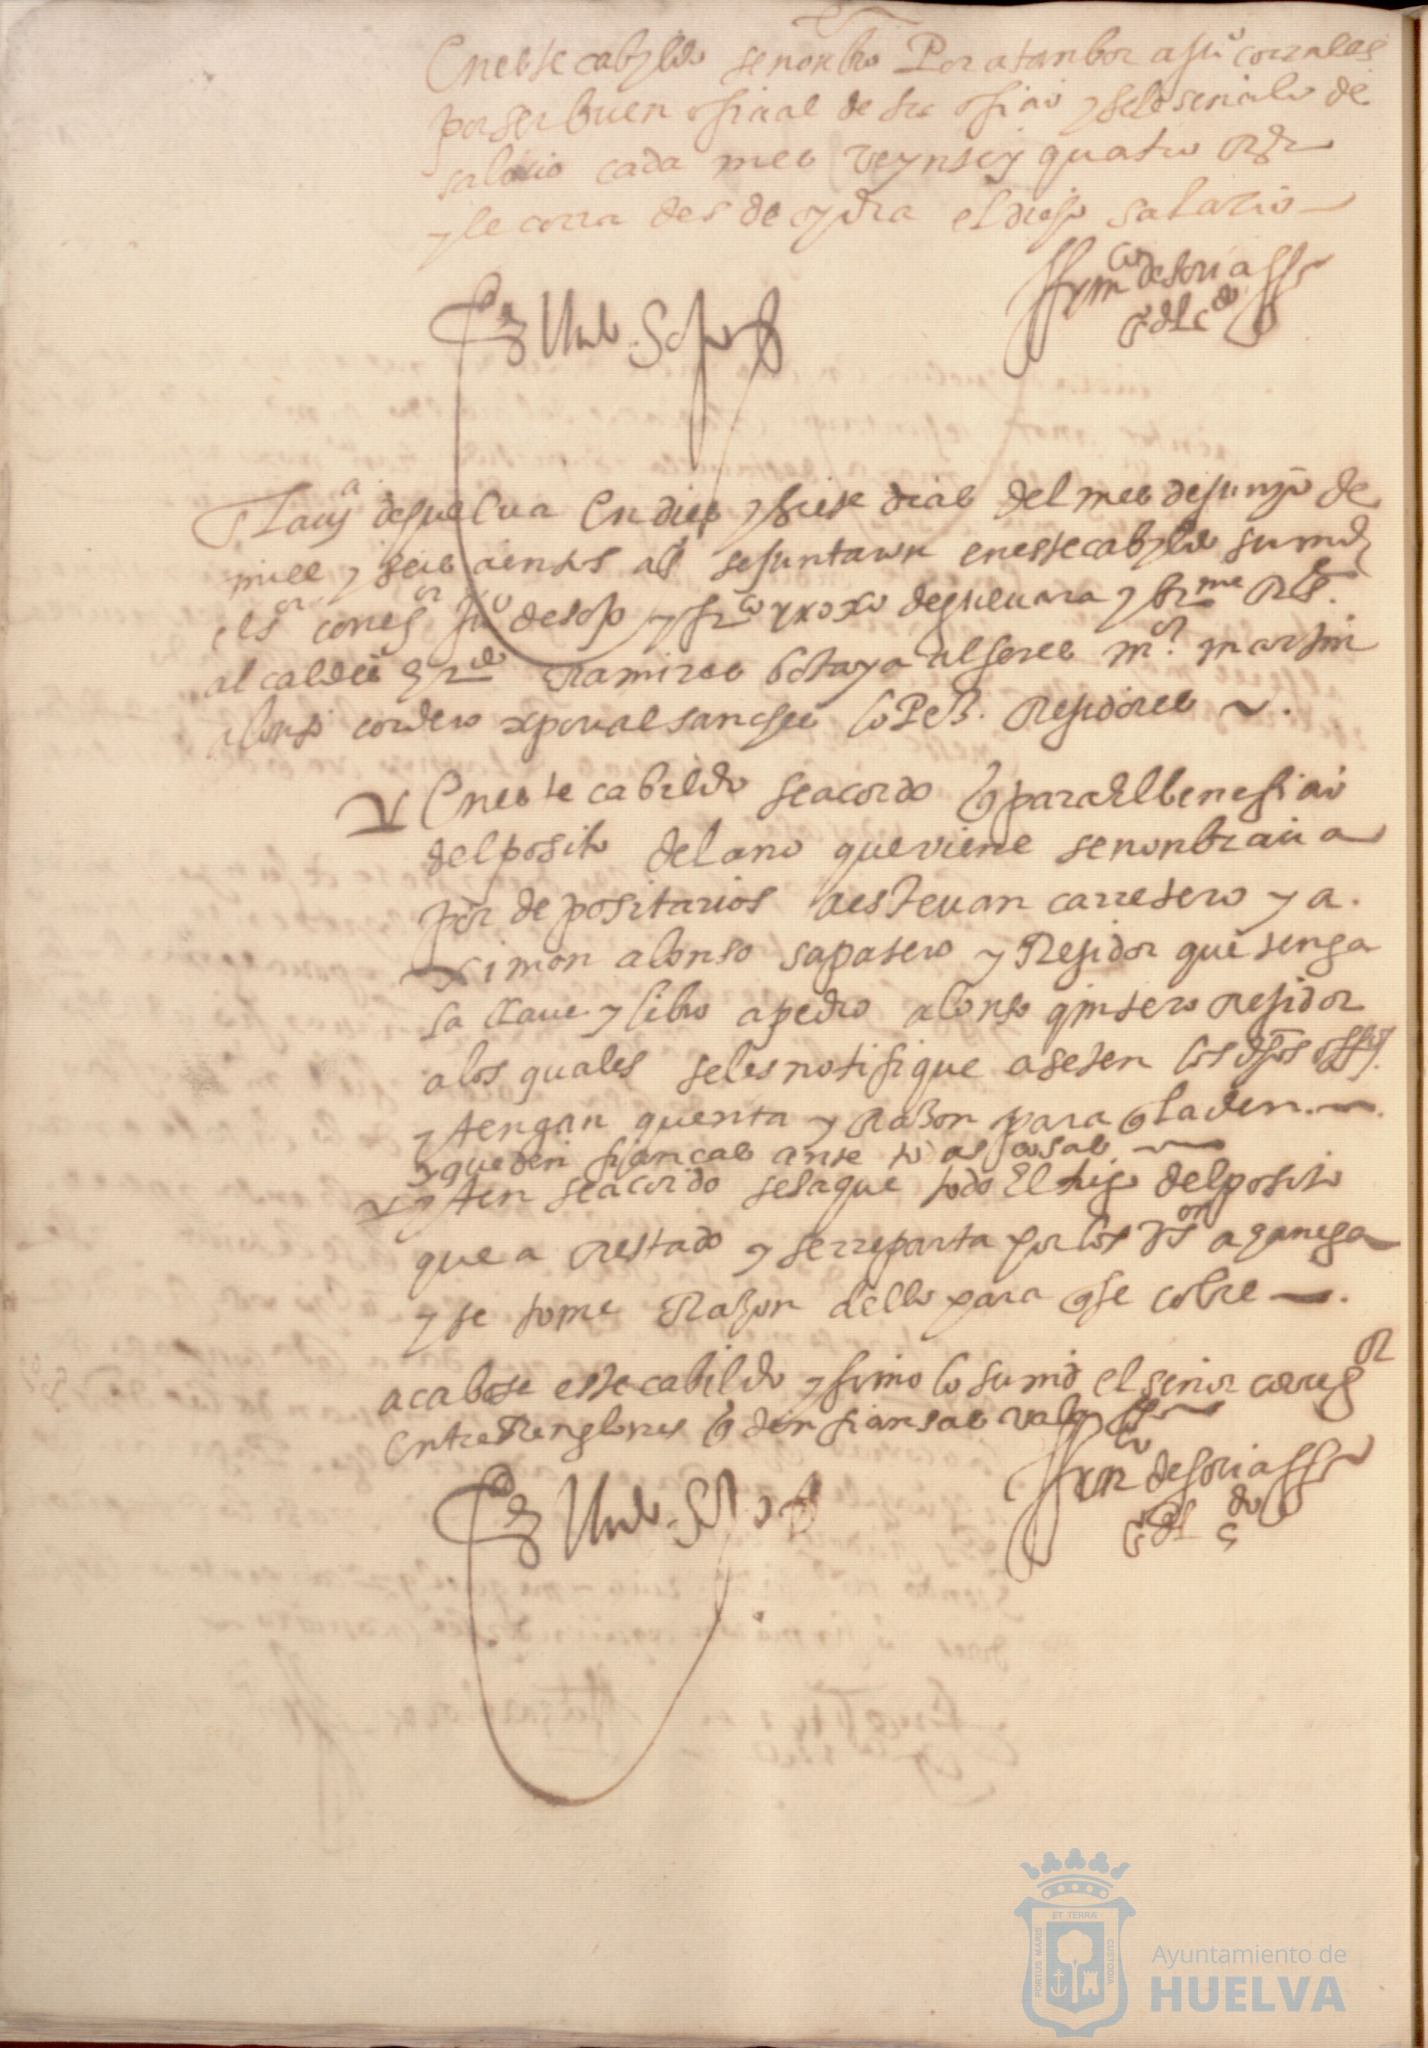 En este cabyldo se nonbro Por atanbor a juº corrales
por ser buen ofiçial de su ofiçio y se le señalo de
salario cada mes veynte y quatro rrs
y le corra desde oy dia el dicho salario
franco de soria
essno del cdo
En la villa de huelua En dies y siete dias del mes de junyo de
mill y seis çientos as se juntaron en este cabyldo su md
el sor corregor juº de   y frco rroxo de gueuara y   
alcaldes y   Ramires botaya alferes mor martin
alonso cordero xpoual sanches loPes. Rejidores
En este cabildo se acordo q para El benefiçio
del posito del año que viene se nonbraua
por depositarios a esteuan carretero y a
ximon alonso sapatero y Rejidor que tenga
la llaue y libro a pedro alonso quintero rrejidor
a los quales se les notifique aseten los dhos offºs
y tengan quenta y rrazon para q la den
y que den fianças ante todas cosas
yten se acordo se saque todo El trigo del posito
que a rrestado y se rreparta por los vºs a ganega
y se tome Razon dello para q se cobre
acabose este cabildo y firmolo su md el señor corregor
Entre Renglones q den fiansas vala
franco de soria
essno del cdo
ET TERRÆ
PORTUS MARIS
CUSTODIA
Ayuntamiento de
HUELVA